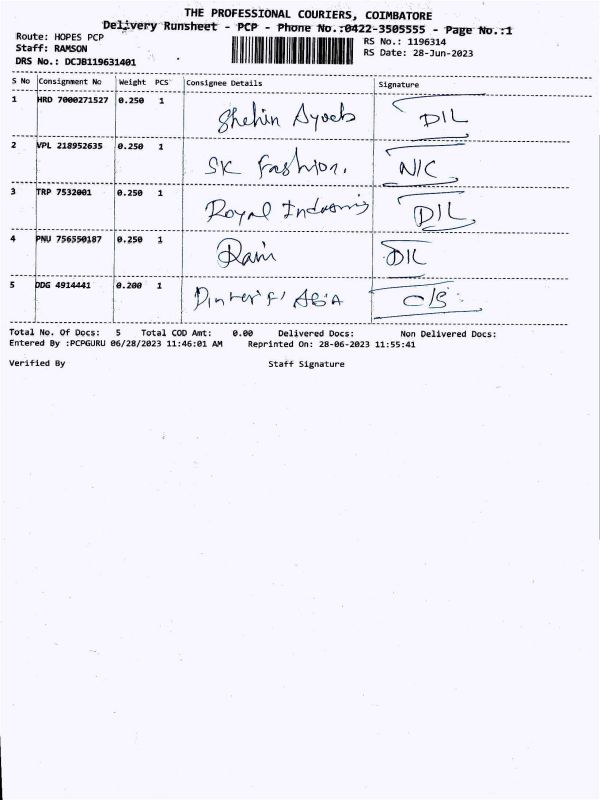 THE PROFESSIONAL COURIERS, COIMBATORE
Delivery Runsheet - PCP - Phone No.:0422-3505555 - Page No.:1
Route: HOPES PCP
RS No.: 1196314
Staff: RAMSON
RS Date: 28-Jun-2023
DRS No.: DCJB119631401
S No Consignment No Weight PCS Consignee Details Signature
1 HRD 7000271527 0.250 1 Shehin Ayoeb DIL
2 VPL 218952635 0.250 1 SK Fashion. N/C
3 TRP 7532001 0.250 1 Royal DIL
4 PNU 756550187 0.250 1 Rain DIL
5 DDG 4914441 0.200 1 ASIA
Total No. Of Docs: 5 Total COD Amt: 0.00 Delivered Docs: Non Delivered Docs:
Entered By :PCPGURU 06/28/2023 11:46:01 AM Reprinted On: 28-06-2023 11:55:41
Verified By Staff Signature